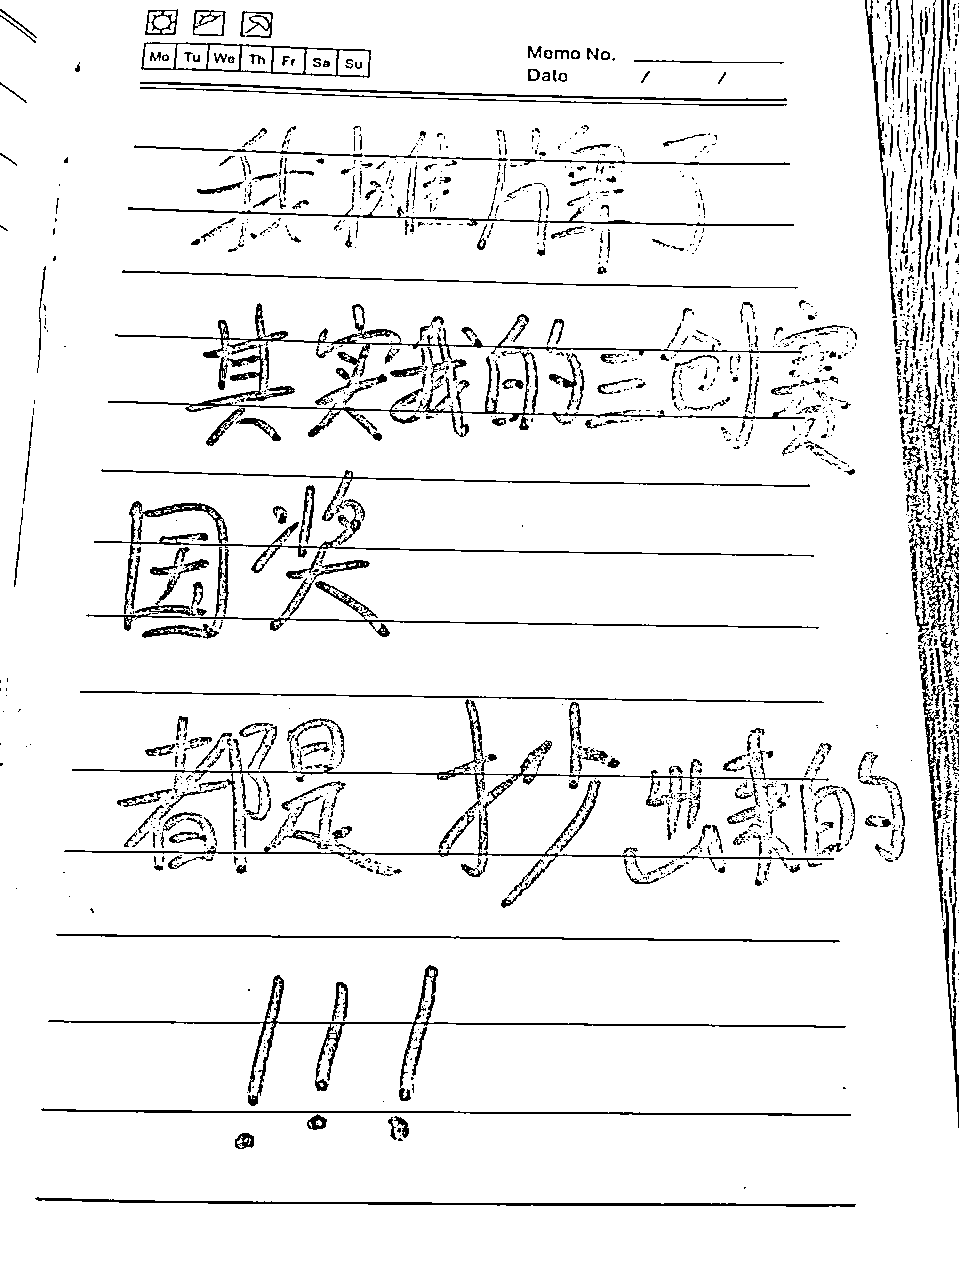 Mo Tu We Th Fr Sa Su
Memo No.
Date / /
我摊牌了
其实我的三创赛
国奖
都是抄来的
!!!